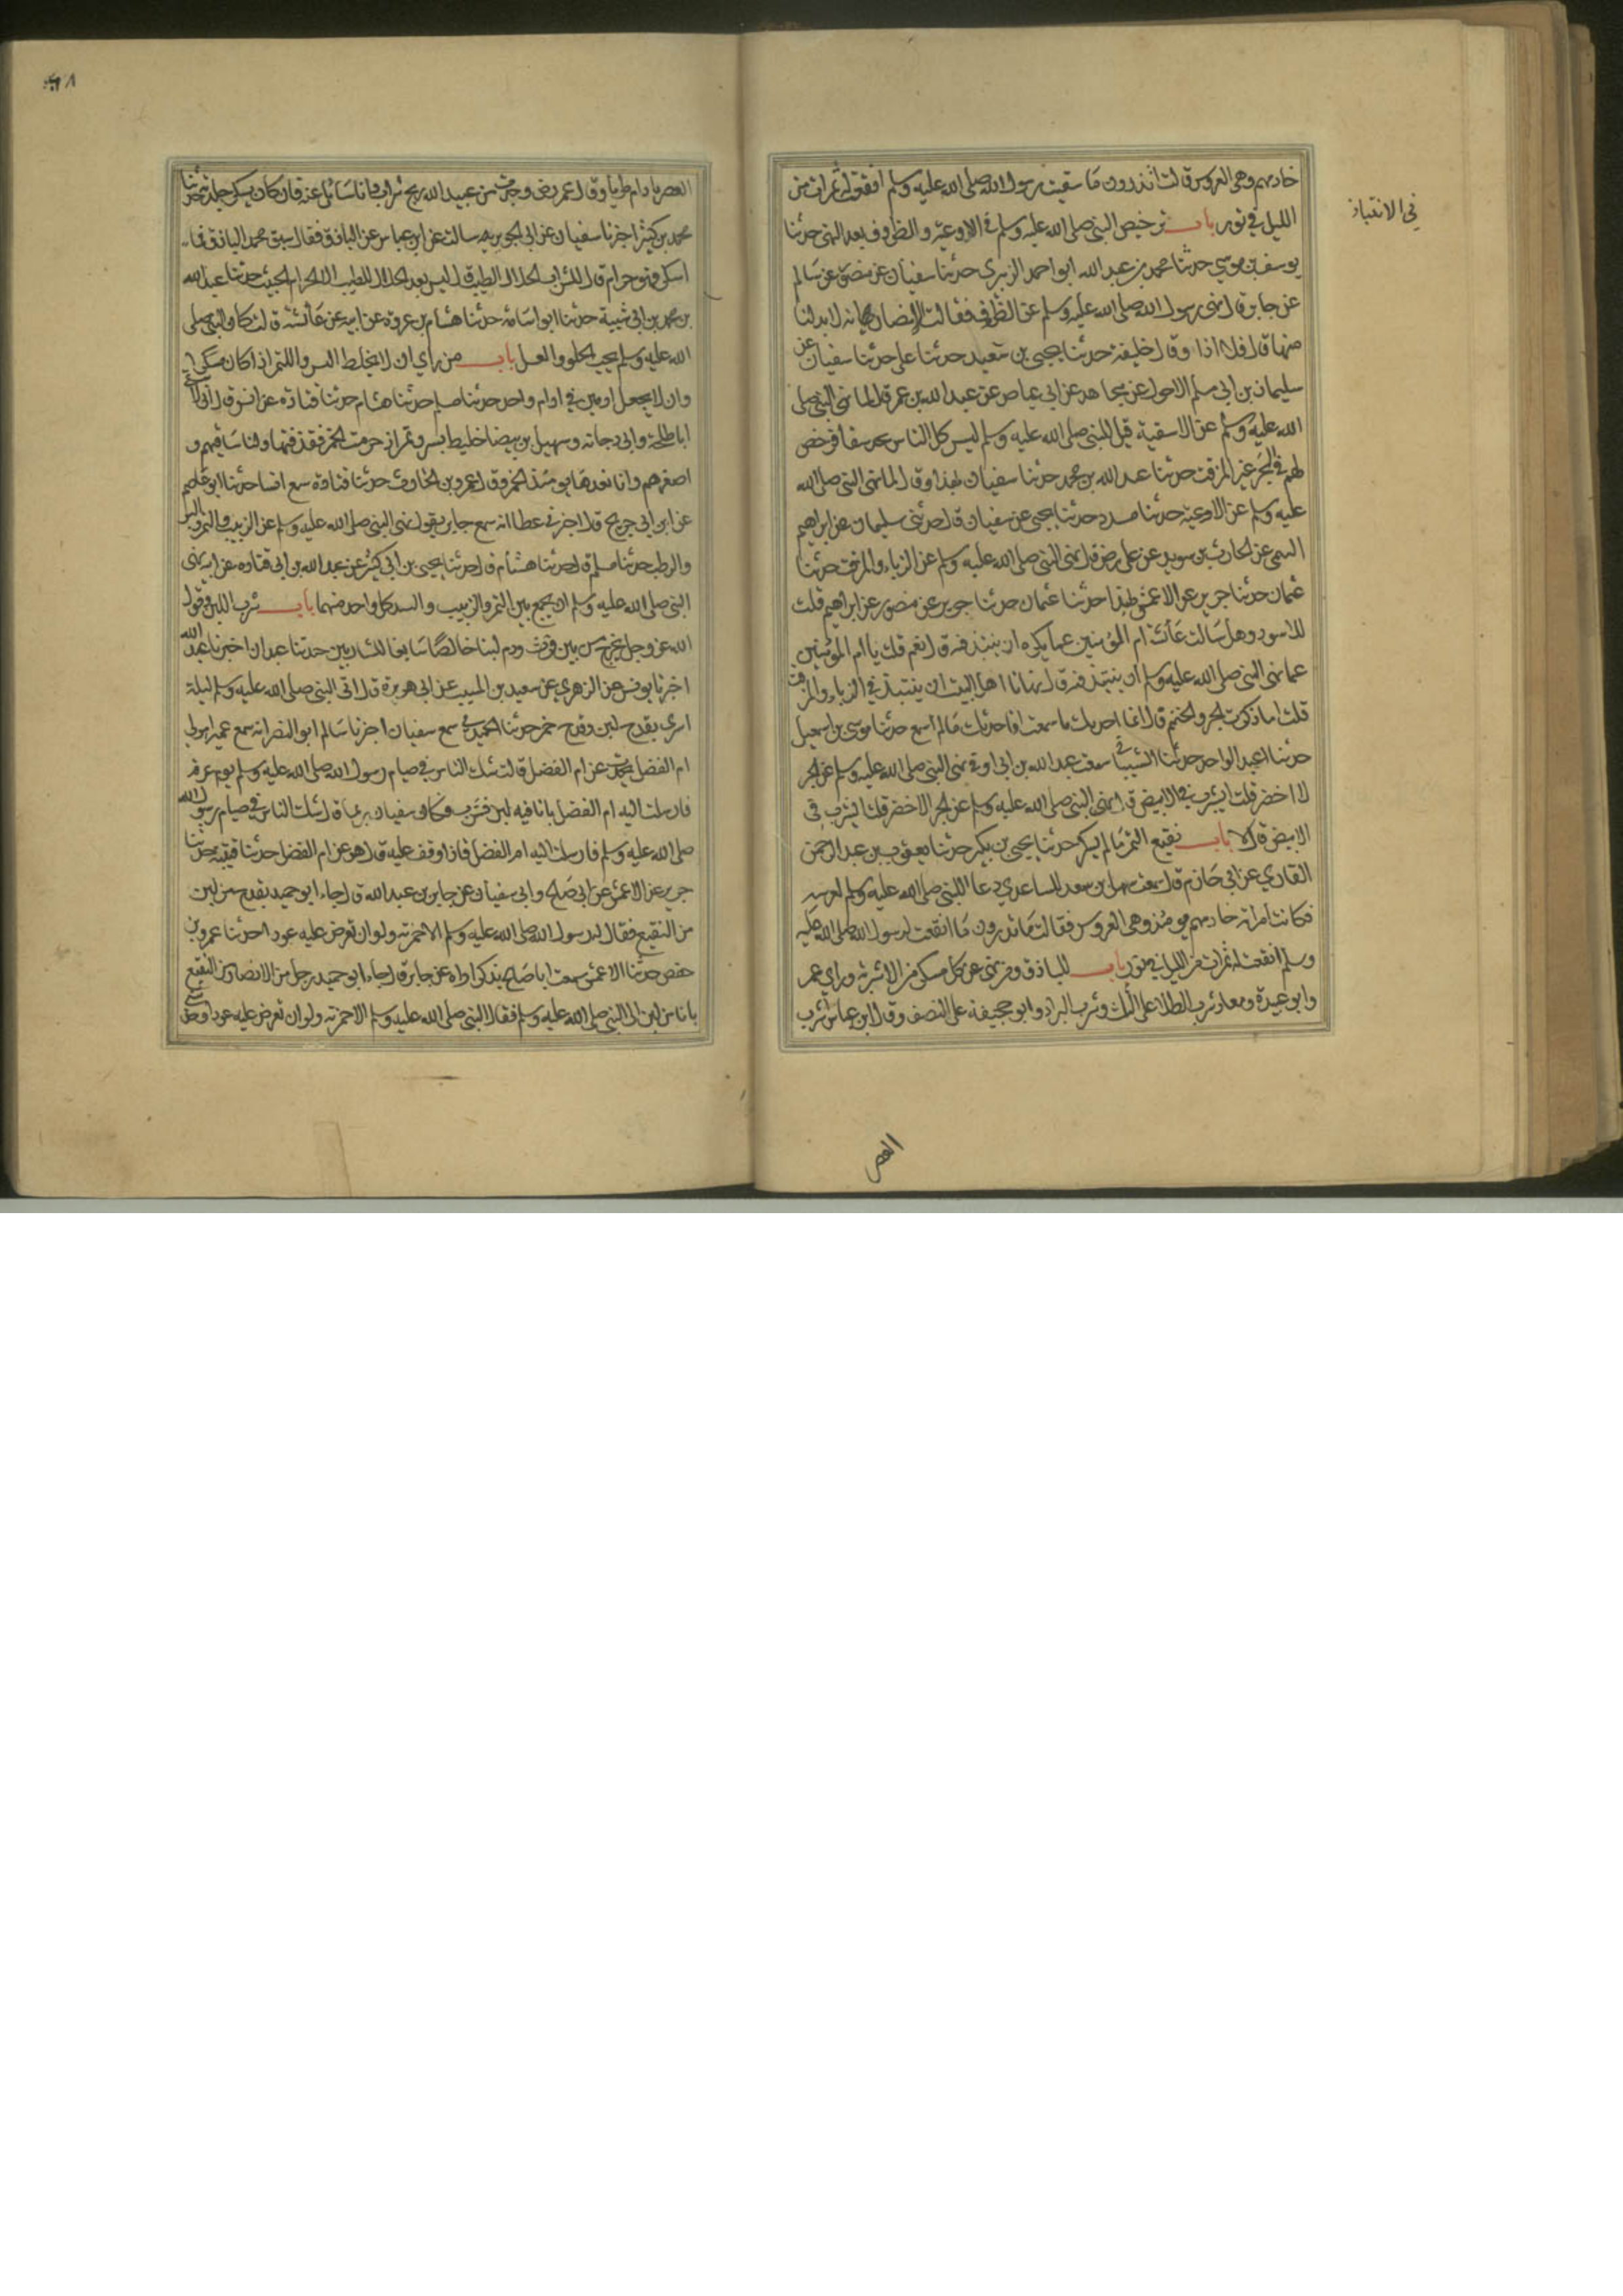 خادمهم وهي العروس قالت اتدرون ما سقيت رسول الله صلى الله عليه وسلم انقعت له تمرات من
في الانتباذ
الليل في تور باب ترخيص النبي صلى الله عليه وسلم في الاوعية والظروف بعد النهي حدثنا
يوسف بن موسي حدثنا محمد بن عبد الله ابو احمد الزبيري حدثنا سفيان عن منصور عن سالم
عن جابر قال نهى رسول الله صلى الله عليه وسلم عن الظروف فقالت الانصار انه لا بد لنا
منها قال فلا اذا وقال خليفة حدثنا يحيى بن سعيد حدثنا علي حدثنا سفيان عن
سليمان بن ابي مسلم الاحول عن مجاهد عن ابي عياض عن عبد الله بن عمر قال لما نهى النبي صلى
الله عليه وسلم عن الاسقية قيل للنبي صلى الله عليه وسلم ليس كل الناس يجد سقا فرخص
لهم في الجر غير المزفت حدثنا عبد الله بن محمد حدثنا سفيان بهذا وقال لما نهى النبي صلى الله
عليه وسلم عن الاوعية حدثنا مسدد حدثنا يحيى عن سفيان قال حدثني سليمان عن ابراهيم
التيمي عن الحارث بن سويد عن علي رض قال نهى النبي صلى الله عليه وسلم عن الدباء والمزفت حدثنا
عثمان حدثنا جرير عن الاعمش بهذا حدثنا عثمان حدثنا جرير عن منصور عن ابراهيم قلت
للاسود هل سالت عائشة ام المؤمنين عما يكره ان ينتبذ فيه قال نعم قلت يا ام المؤمنين
عما نهى النبي صلى الله عليه وسلم ان ينتبذ فيه قالت نهانا اهل البيت ان ننتبذ في الدباء والمزفت
قلت اما ذكرت الجر والحنتم قال انما احدثك ما سمعت افاحدثك ما لم اسمع حدثنا موسى بن اسمعيل
حدثنا عبد الواحد حدثنا الشيباني سمعت عبد الله بن ابي اوفى نهى النبي صلى الله عليه وسلم عن الجر
الاخضر قلت ايشرب في الابيض قال نهى النبي صلى الله عليه وسلم عن الجر الاخضر قلت ايشرب في
الابيض قال لا باب نقيع التمر ما لم يسكر حدثنا يحيى بن بكير حدثنا يعقوب بن عبد الرحمن
القاري عن ابي حازم قال سمعت سهل بن سعد الساعدي دعا النبي صلى الله عليه وسلم لعرسه
فكانت امراته خادمهم يومئذ وهي العروس فقالت ما تدرون ما انقعت لرسول الله صلى الله عليه
وسلم انقعت له تمرات من الليل في تور باب الباذق ومن نهى عن كل مسكر من الاشربة وراي عمر
وابو عبيدة ومعاذ شرب الطلا على الثلث وشرب البراء وابو جحيفة على النصف وقال ابن عباس اشرب
العصير
العصير ما دام طريا وقال عمر رض وجدت من عبيد الله ريح شراب وانا سائل عنه فان كان يسكر جلدته حدثنا
محمد بن كثير اخبرنا سفيان عن ابي الجويرية سالت عن ابن عباس عن الباذق فقال سبق محمد الباذق فما
اسكر فهو حرام قال الشراب الحلال الطيب قال ليس بعد الحلال الطيب الا الحرام الخبيث حدثنا عبد الله
بن محمد بن ابي شيبة حدثنا ابو اسامة حدثنا هشام بن عروة عن ابيه عن عائشة قالت كان النبي صلى
الله عليه وسلم يحب الحلوا والعسل باب من راي ان لا يخلط البسر والتمر اذا كان مسكرا
وان لا يجعل ادمين في ادام واحد حدثنا مسلم حدثنا هشام حدثنا قتادة عن انس قال اني لاسقي
ابا طلحة وابي دجانة وسهيل بن بيضا خليط بسر وتمر اذ حرمت الخمر فقذفتها وانا ساقيهم و
اصغرهم وانا نعدها يومئذ الخمر وقال عمرو بن الحارث حدثنا قتادة سمع انسا حدثنا ابو عاصم
عن ابن ابي جريج قال اخبرني عطا انه سمع جابر يقول نهى النبي صلى الله عليه وسلم عن الزبيب والتمر والبسر
والرطب حدثنا مسلم قال حدثنا هشام قال حدثنا يحيى بن ابي كثير عن عبد الله بن ابي قتاده عن ابيه نهى
النبي صلى الله عليه وسلم ان يجمع بين التمر والزبيب و كل واحد منهما باب شرب اللبن وقول
الله عز وجل يخرج من بين فرث ودم لبنا خالصا سايغا للشاربين حدثنا عبدان اخبرنا عبد الله
اخبرنا يونس عن الزهري عن سعيد بن المسيب عن ابي هريرة قال اتى النبي صلى الله عليه وسلم ليلة
اسرى بقدح لبن وقدح خمر حدثنا الحميدي سمع سفيان اخبرنا سالم ابو النضر انه سمع عميرا مولى
ام الفضل يحدث عن ام الفضل قالت شك الناس في صيام رسول الله صلى الله عليه وسلم يوم عرفة
فارسلت اليه ام الفضل بانا فيه لبن فشرب فكان سفيان ربما قال شك الناس في صيام رسول الله
صلى الله عليه وسلم فارسلت اليه ام الفضل فاذا وقف عليه قال هو عن ام الفضل حدثنا قتيبة حدثنا
جرير عن الاعمش عن ابي صالح وابي سفيان عن جابر بن عبد الله قال جاء ابو حميد بقدح من لبن
من النقيع فقال له رسول الله صلى الله عليه وسلم الا خمرته ولو ان تعرض عليه عودا حدثنا عمرو بن
حفص حدثنا الاعمش سمعت ابا صالح يذكر اراه عن جابر قال جاء ابو حميد رجل من الانصار من النقيع
باناء من لبن الى النبي صلى الله عليه وسلم فقال النبي صلى الله عليه وسلم الا خمرته ولو ان تعرض عليه عودا